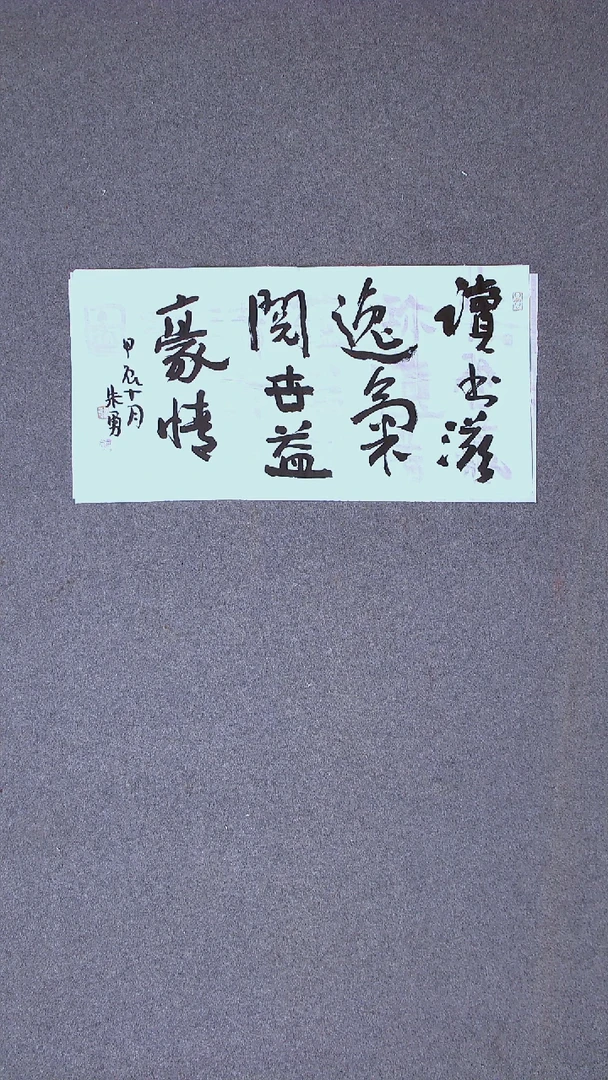 讀书滋
逸氣
閱世益
豪情
甲辰十月
朱勇